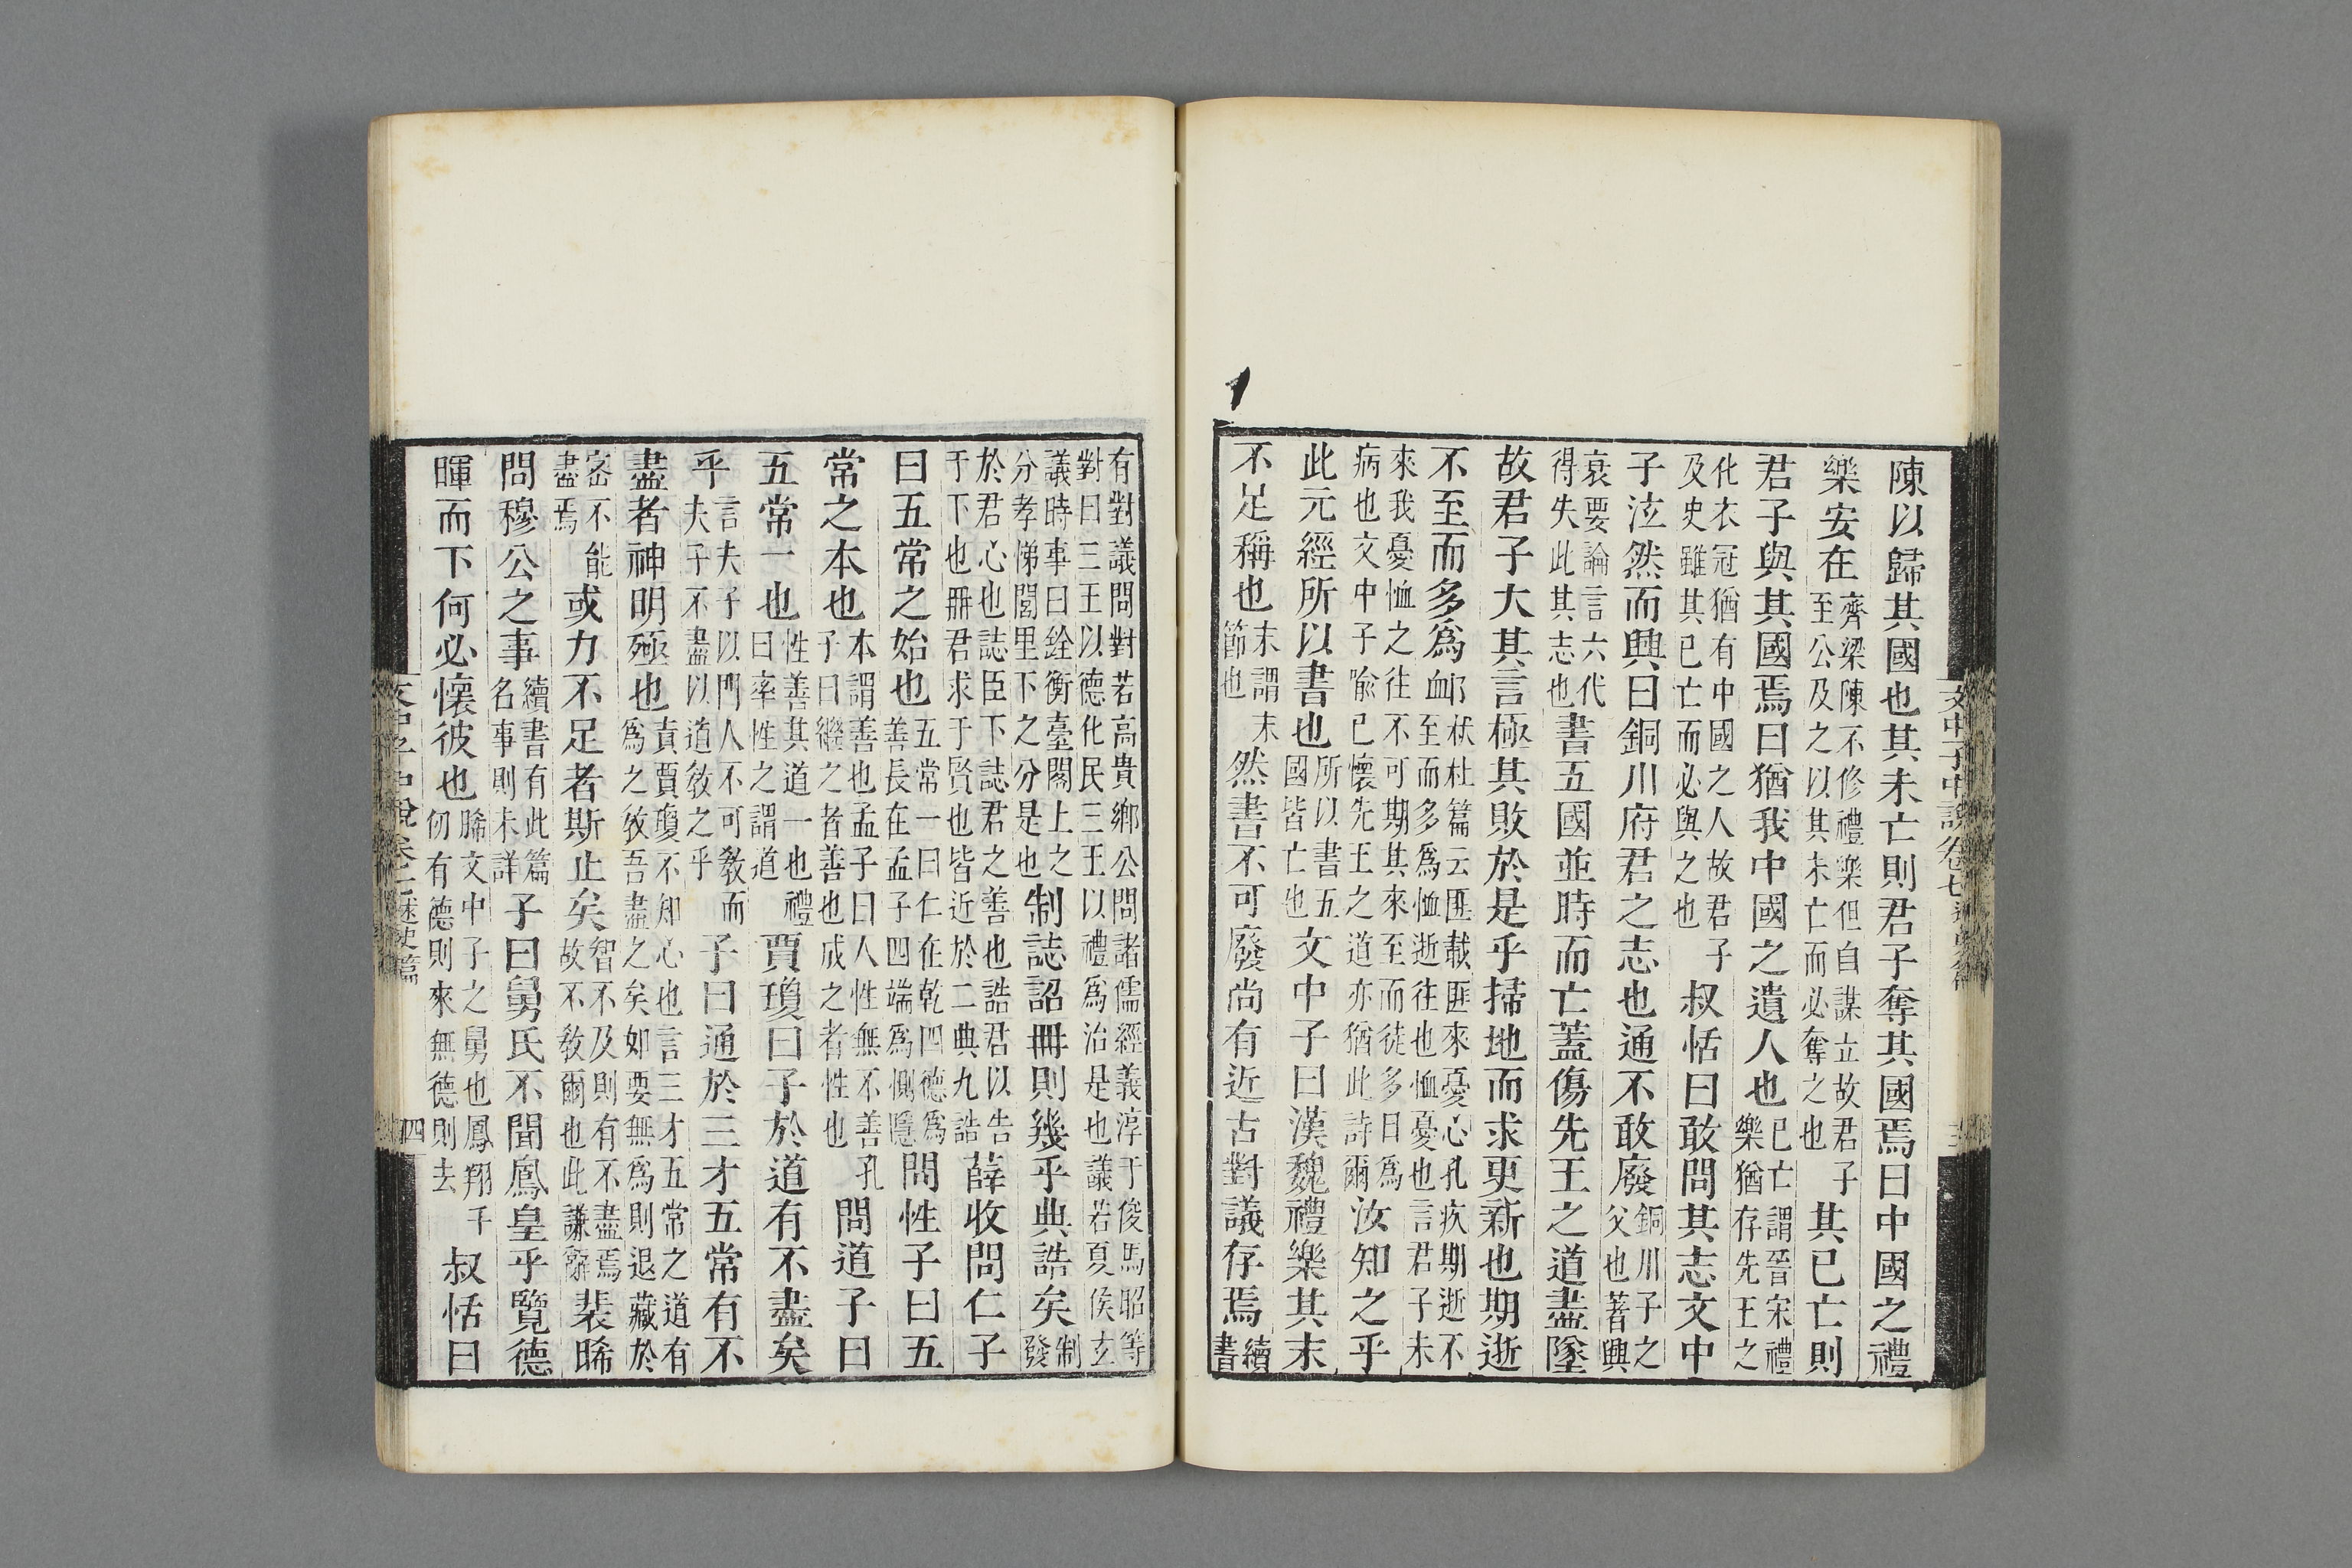 陳以歸其國也其未亡則君子奪其國焉曰中國之禮
樂安在齊梁陳不修禮樂但自謀立故君子至公及之以其未亡而必奪之也其已亡則
君子與其國焉曰猶我中國之遺人也已亡謂晉宋禮樂猶存先王之
化衣冠猶有中國之人故君子及史雖其已亡而必與之也叔恬曰敢問其志文中
子泫然而興曰銅川府君之志也通不敢廢銅川子之父也著興
衰要論言六代得失此其志也書五國並時而亡蓋傷先王之道盡墜
故君子大其言極其敗於是乎掃地而求更新也期逝
不至而多為䘏杕杜篇云匪載匪來憂心孔疚期逝不至而多為恤逝往也恤憂也言君子未
來我憂恤之往不可期其來至而徒多日為病也文中子喻已懷先王之道亦猶此詩爾汝知之乎
此元經所以書也所以書五國皆亡也文中子曰漢魏禮樂其末
不足稱也末謂末節也然書不可廢尚有近古對議存焉續書
有對議問對若高貴鄉公問諸儒經義淳于俊馬昭等對曰三王以德化民三王以禮為治是也議若夏侯玄
議時事曰銓衡臺閣上之分孝悌閭里下之分是也制誌詔冊則幾乎典誥矣制發
於君心也誌臣下誌君之善也誥君以告于下也冊君求于賢也皆近於二典九誥薛收問仁子
曰五常之始也五常一曰仁在乾四德為善長在孟子四端為惻隱問性子曰五
常之本也本謂善也孟子曰人性無不善孔子曰繼之者善也成之者性也問道子曰
五常一也性善其道一也禮曰率性之謂道賈瓊曰子於道有不盡矣
乎言夫子以門人不可教而夫子不盡以道教之乎子曰通於三才五常有不
盡者神明殛也責賈瓊不知心也言三才五常之道有為之教吾盡之矣如要無為則退藏於
密不能盡焉或力不足者斯止矣智不及則有不盡焉故不教爾也此謙辭裴晞
問穆公之事續書有此篇名事則未詳子曰舅氏不聞鳳皇乎覽德
暉而下何必懷彼也晞文中子之舅也鳳翔千仞有德則來無德則去叔恬曰